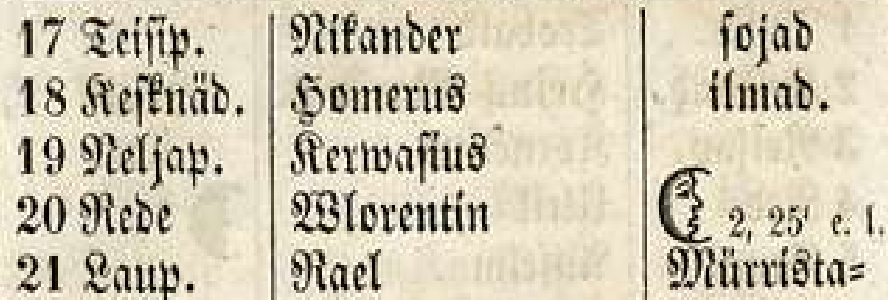 17 Teisip. Nikander sojad
18 Kesknäd. Homerus ilmad.
19 Neljap. Kerwasius
20 Rede Wlorentin 2, 25' e. l.
21 Laup. Rael Mürrista=